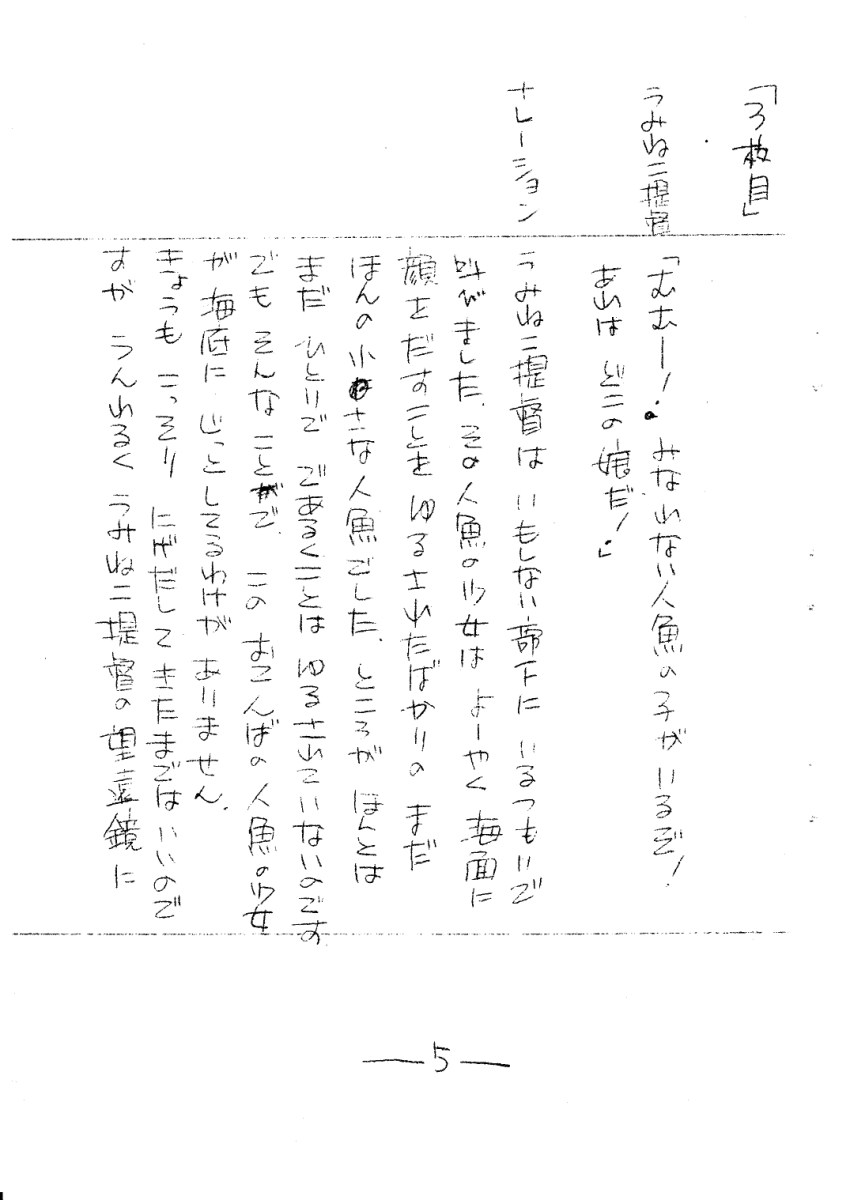 「3枚目」
うみねこ提督
「むむー!。みなれない人魚の子がいるぞ!
あれは どこの娘だ!」
ナレーション
うみねこ提督は いもしない部下に いるつもりで
叫びました、その人魚の少女は よーやく 海面に
顔をだすことを ゆるされたばかりの まだ
ほんの小さな人魚でした、ところが ほんとは
まだ ひとりで であるくことは ゆるされていないのです
でも そんなことで、この おてんばの人魚の少女
が 海底に じっとしてるわけが ありません、
きょうも こっそり にげだして きたまではいいので
すが うんわるく うみねこ提督の望遠鏡に
—5—